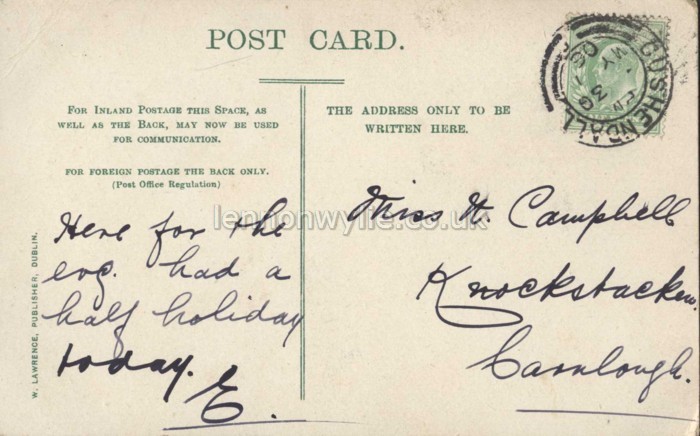 POST CARD.
FOR INLAND POSTAGE THIS SPACE, AS
WELL AS THE BACK, MAY NOW BE USED
FOR COMMUNICATION.
FOR FOREIGN POSTAGE THE BACK ONLY.
(Post Office Regulation)
THE ADDRESS ONLY TO BE
WRITTEN HERE.
CUSHENDALL
MY 3
06
lennonwylie.co.uk
Here for the
evg. had a
half holiday
today.
E.
Miss H. Campbell
Knockstacken.
Carnlough.
W. LAWRENCE, PUBLISHER, DUBLIN.